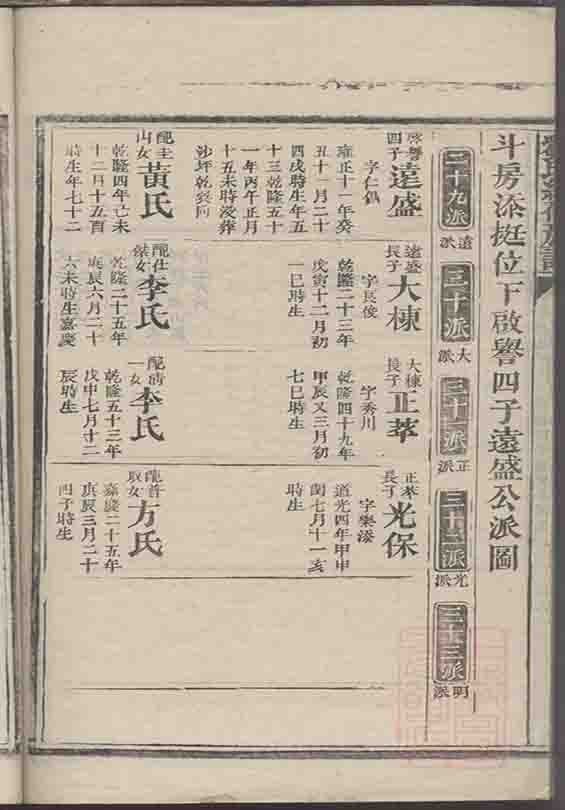 斗房添挺位下啟譽四子遠盛公派圖
二十九派
遠派
三十派
大派
三十一派
正派
三十二派
光派
三十三派
明派
啟譽四子
遠盛
字仁倡
雍正十一年癸
丑十一月二十
四戌時生年五
十三乾隆五十
一年丙午正月
十五未時歿葬
沙坪乾癸向
配圭山女
黃氏
乾隆四年己未
十二月十五酉
時生年七十二
遠盛長子
大棟
字長俊
乾隆二十三年
戊寅十二月初
一巳時生
配仕傑女
李氏
乾隆二十五年
庚辰六月二十
六未時生嘉慶
大棟長子
正萃
字秀川
乾隆四十九年
甲辰又三月初
七巳時生
配清一女
李氏
乾隆五十三年
戊申七月十二
辰時生
正萃長子
光保
字樂
道光四年甲申
閏七月十一亥
時生
配普取女
方氏
嘉慶二十五年
庚辰三月二十
四子時生